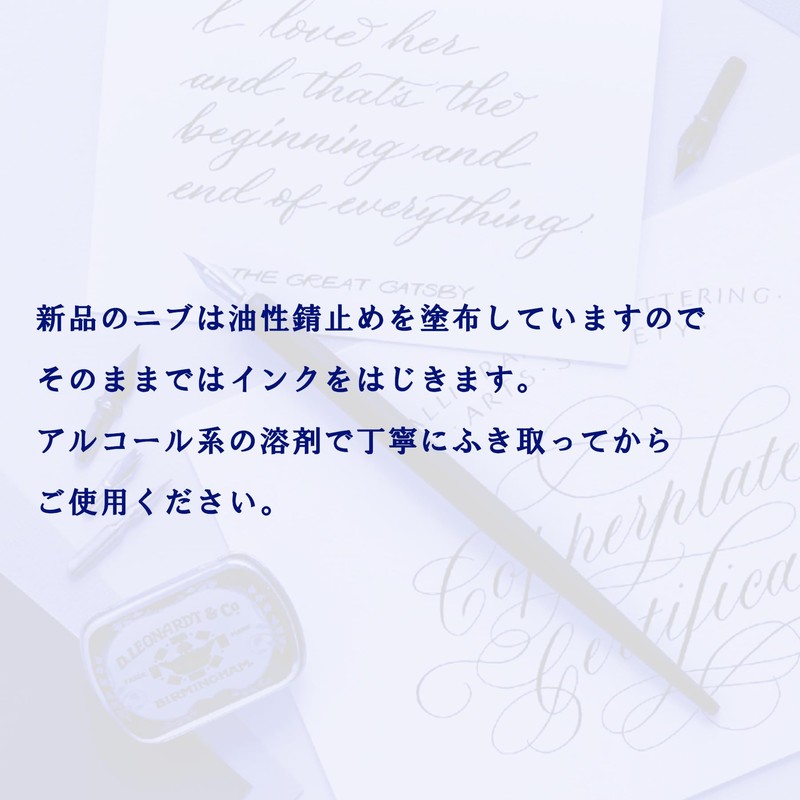 I love her
and that's the
beginning and
end of everything.
THE GREAT GATSBY
新品のニブは油性錆止めを塗布していますので
そのままではインクをはじきます。
アルコール系の溶剤で丁寧にふき取ってから
ご使用ください。
Copperplate
Certifica
D. LEONARDT & Co
BIRMINGHAM